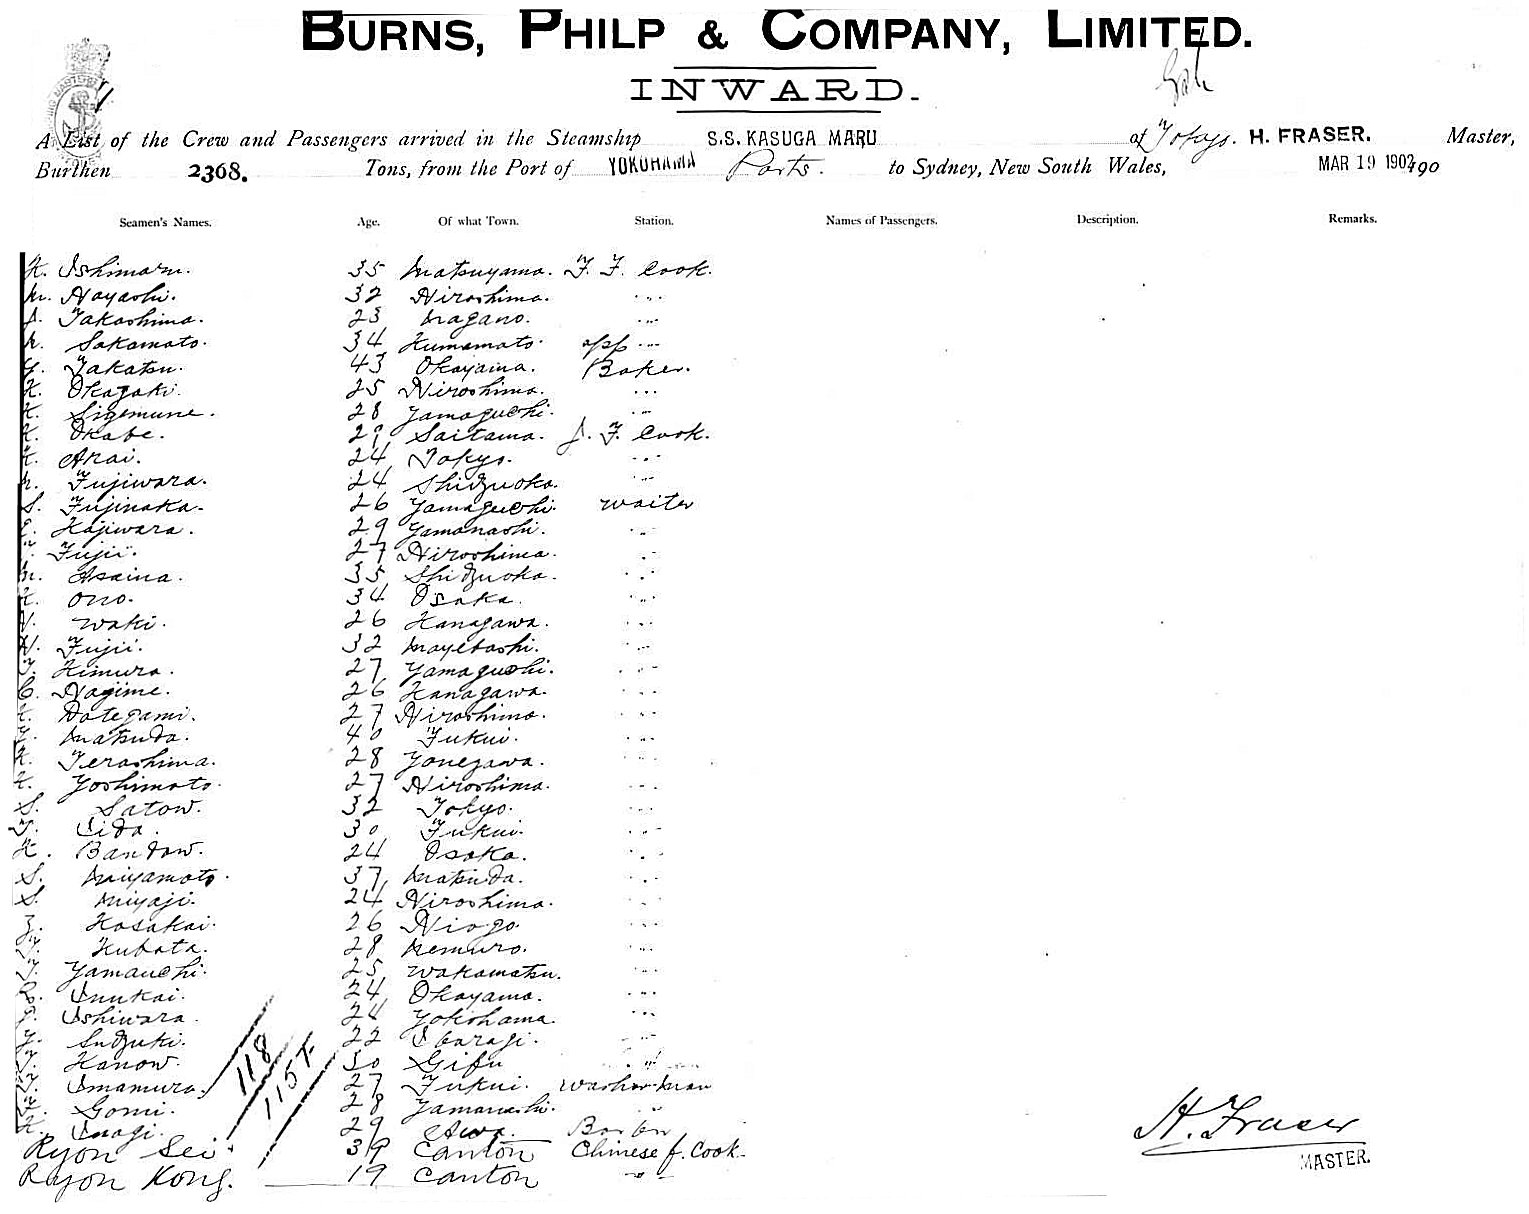 BURNS, PHILP & COMPANY, LIMITED.
INWARD.
A List of the Crew and Passengers arrived in the Steamship S.S. KASUGA MARU of Tokyo. H. FRASER. Master,
Burthen 2368. Tons, from the Port of YOKOHAMA Ports. to Sydney, New South Wales, MAR 19 1902 190
Seamen's Names. Age. Of what Town. Station. Names of Passengers. Description. Remarks.
K. Ishimaru. 35 Matsuyama. F. F. Cook.
M. Hayashi. 32 Hiroshima. "
J. Takashima. 23 Nagano. "
Sakamoto. 34 Kumamoto. app "
Y. Takatsu. 43 Okayama. Baker.
K. Okazaki. 25 Hiroshima. "
K. Sigemune. 28 Yamaguchi. "
K. Okabe. 29 Saitama. J. F. Cook.
K. Arai. 24 Tokyo. "
Fujiwara. 24 Shidzuoka. "
S. Fujinaka. 26 Yamaguchi. Waiter
Kajiwara. 29 Yamanashi. "
Fujii. 27 Hiroshima. "
M. Asaina. 35 Shidzuoka. "
K. Ono. 34 Osaka. "
Waki. 26 Kanagawa. "
Fujii. 32 Mayebashi. "
Kimura. 27 Yamaguchi. "
C. Hagime. 26 Kanagawa. "
Dotegami. 27 Hiroshima. "
Matsuda. 40 Fukui. "
K. Terashima. 28 Yonezawa. "
K. Yoshimoto. 27 Hiroshima. "
S. Satow. 32 Tokyo. "
Iida. 30 Fukui. "
K. Bandow. 24 Osaka. "
S. Miyamoto. 37 Matsuda. "
S. Miyaji. 24 Hiroshima. "
Z. Kosakai. 26 Hiogo "
Kubota. 28 Nemuro. "
Yamauchi. 25 Wakamatsu. "
Inukai. 24 Okayama. "
Ishiwara. 24 Yokohama. "
Y. Sudzuki. 22 Ibaragi. "
Kanow. 30 Gifu "
Imamura. 27 Fukui. Washerman
Gomi. 28 Yamanashi. "
K. Inagi. 29 Awa.
Ryon Sei. 39 Canton Chinese f. Cook.
Ryon Kong. 19 Canton "
118
115
H. Fraser
MASTER.